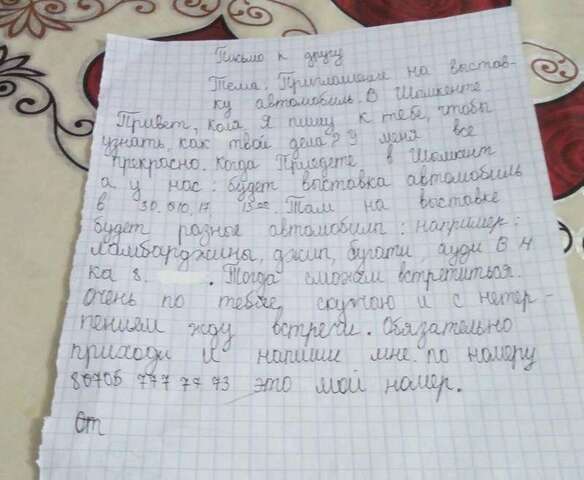 Письмо к другу
Тема: Приглашения на выстав-
ку автомобиль. В Шымкенте
Привет, Коля Я пишу к тебе, чтобы
узнать, как твой дела? У меня все
прекрасно. Когда Приедете в Шымкент
а у нас: будет выставка автомобиль
в 30.010.17 13:00. Там на выставке
будет разные автомобили: например:
Ламбарджины, джип, бугати, ауди
ка 8. Тогда сможем встретиться.
очень по тебе, скучаю и с нетер-
пением жду встречи. Обязательно
приходи и напиши мне по номеру
86705 777 77 73 это мой номер.
От